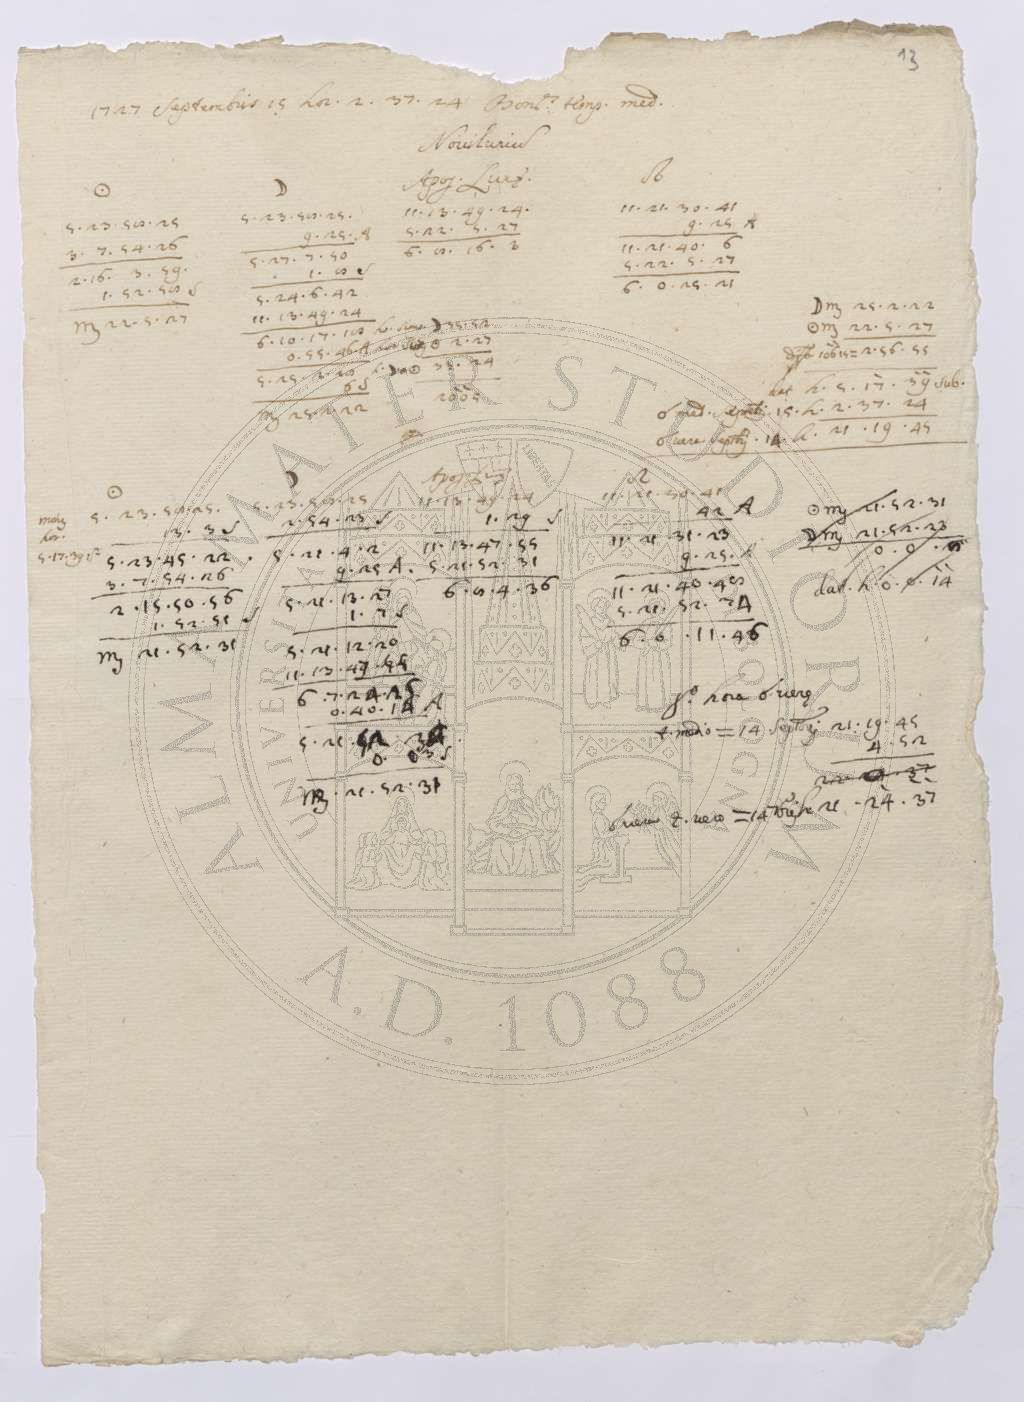 13
1727 Septembris 15 hor. 2. 37. 24 Bon.ᵃ temp. med.
Novilunium
☉
5. 23. 58. 25
3. 7. 54. 26
2. 16. 3. 59.
1. 52. 58 S
♍ 22. 5. 27
☽
5. 23. 58. 25.
9. 25. A
5. 27. 7. 50
1. 8 S
5. 24. 6. 42
11. 13. 49. 24
6. 10. 17. 18
0. 55. 46 A
5. 25. 2. 28
6 S
♍ 25. 2. 22
Apog. Lunę.
11. 13. 49. 24.
5. 22. 5. 27
6. 8. 16. 3
☽ 35. 52
☉ 2. 27
☽ a ☉ 33. 24
2005
☊
11. 21. 30. 41
9. 25 A
11. 21. 40. 6
5. 22. 5. 27
6. 0. 25. 21
☽ ♍ 25. 2. 22
☉ ♍ 22. 5. 27
10615 = 2. 56. 55
dat h. 5. 17. 39 sub.
☌ med. Septbr. 15. h. 2. 37. 24
☌ vera Septbr. 14. h. 21. 19. 45
☉
5. 23. 58. 25.
motus
hor.
5. 17. 39 S
13. 3 S
5. 23. 45. 22.
3. 7. 54. 26
2. 15. 50. 56
1. 52. 51 S
♍ 21. 52. 31
☽
5. 23. 58. 25
2. 54. 23 S
5. 21. 4. 2
9. 25 A.
5. 21. 13. 27
1. 7 S
5. 21. 12. 20
11. 13. 47. 55
6. 7. 24. 25
0. 40. 14 A
5. 21. 52. 34.
0. 03 S
♍. 21. 52. 31
Apog. Lunę
11. 13. 49. 24
1. 29 S
11. 13. 47. 55
5. 21. 52. 31
6. 8. 4. 36
☊
11. 21. 30. 41
42 A
11. 21. 31. 23
9. 25. A
11. 21. 40. 48
5. 21. 52. 34
6. 0. 11. 46
☉ ♍ 21. 52. 31
☽ ♍ 21. 52. 23
0. 0. 8
dat. h. 0. 0. 14
g.º hora ☌ verę
t. medio = 14 Septbrj 21. 19. 45
4. 52
22. 24. 37
☌ vera t. vero = 14 7bris h. 21. 24. 37
ALMA MATER STUDIORUM
UNIVERSITÀ DI BOLOGNA
A.D. 1088